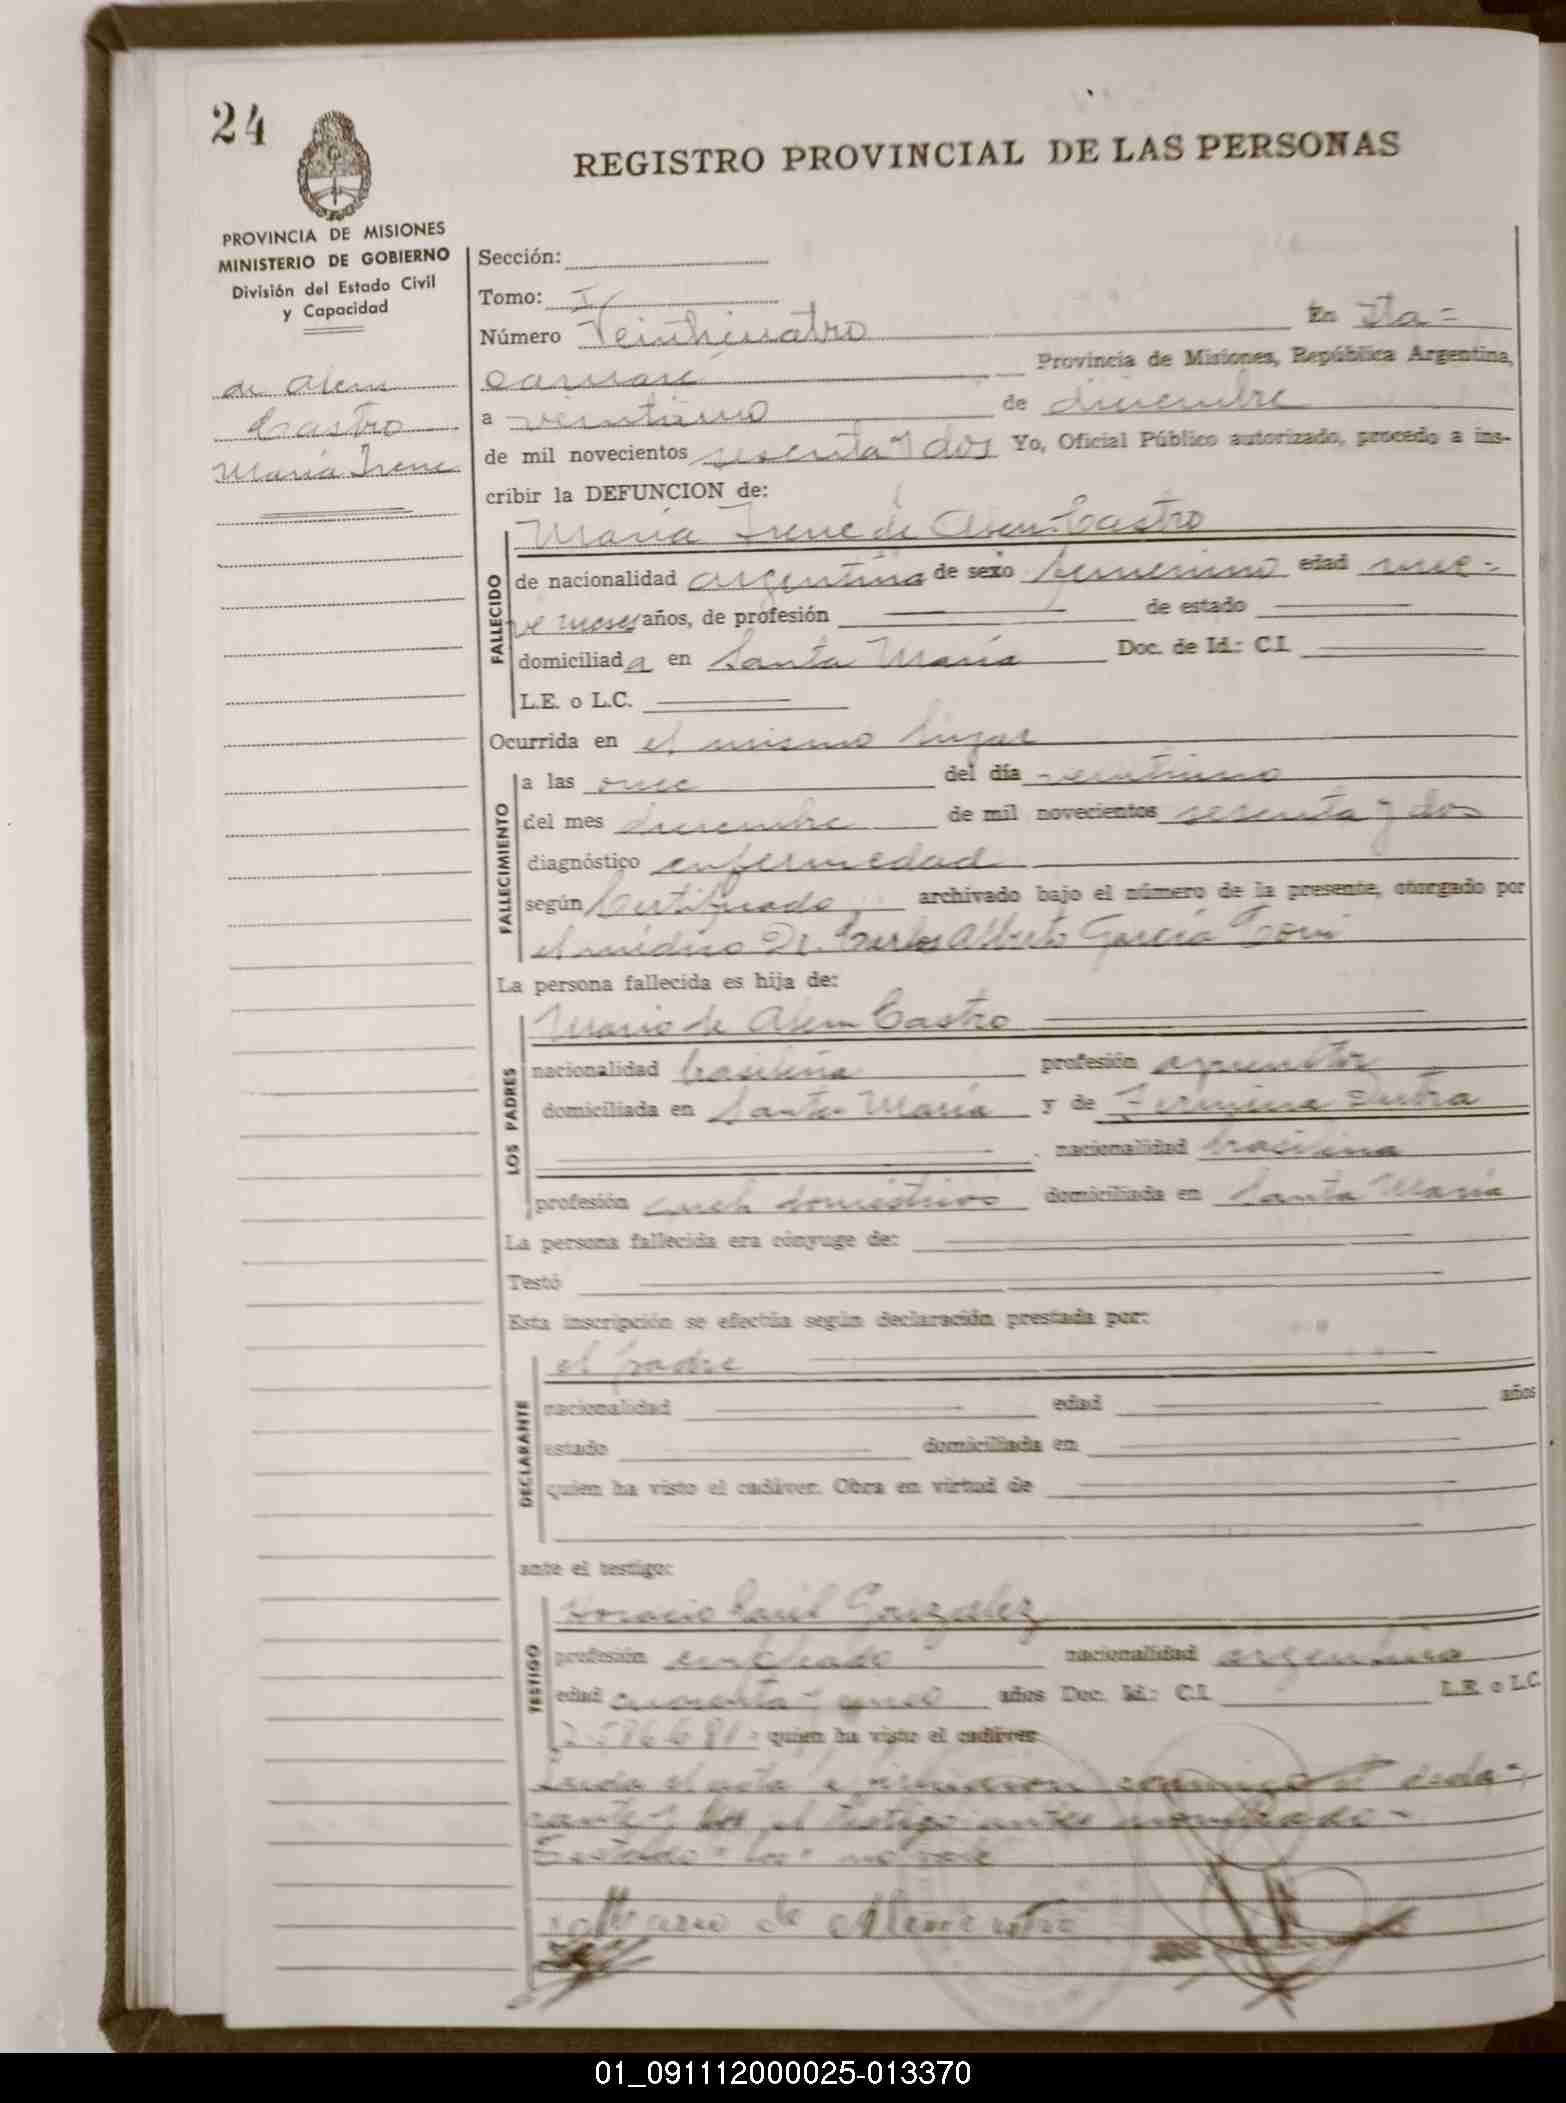 24
REGISTRO PROVINCIAL DE LAS PERSONAS
PROVINCIA DE MISIONES
MINISTERIO DE GOBIERNO
División del Estado Civil
y Capacidad
de Alem
Castro
María Irene
Sección:
Tomo: I
Número Veinticuatro En Ita=
caruaré Provincia de Misiones, República Argentina,
a veintiuno de diciembre
de mil novecientos sesenta y dos Yo, Oficial Público autorizado, procedo a ins-
cribir la DEFUNCION de:
María Irene de Alem Castro
FALLECIDO
de nacionalidad argentina de sexo femenino edad nue=
ve meses años, de profesión de estado
domiciliada en Santa María Doc. de Id.: C.I.
L.E. o L.C.
Ocurrida en el mismo lugar
FALLECIMIENTO
a las once del día veintiuno
del mes diciembre de mil novecientos sesenta y dos
diagnóstico enfermedad
según Certificado archivado bajo el número de la presente, otorgado por
el médico Dr. Carlos Alberto García
La persona fallecida es hija de:
LOS PADRES
Mario de Alem Castro
nacionalidad brasileña profesión agricultor
domiciliada en Santa María y de Fermina Dutra
nacionalidad brasileña
profesión queh. domésticos domiciliada en Santa María
La persona fallecida era cónyuge de:
Testó
Esta inscripción se efectúa según declaración prestada por:
DECLARANTE
el padre
nacionalidad edad años
estado domiciliada en
quien ha visto el cadáver. Obra en virtud de
ante el testigo:
TESTIGO
Horacio Raúl González
profesión empleado nacionalidad argentina
edad cuarenta y cinco años Doc. Id.: C.I. L.E. o L.C.
quien ha visto el cadáver
Leída el acta la firmaron conmigo el decla=
rante y los el testigo antes nombrado-
Testado: los: no vale
Mario de Alem Castro
01_091112000025-013370